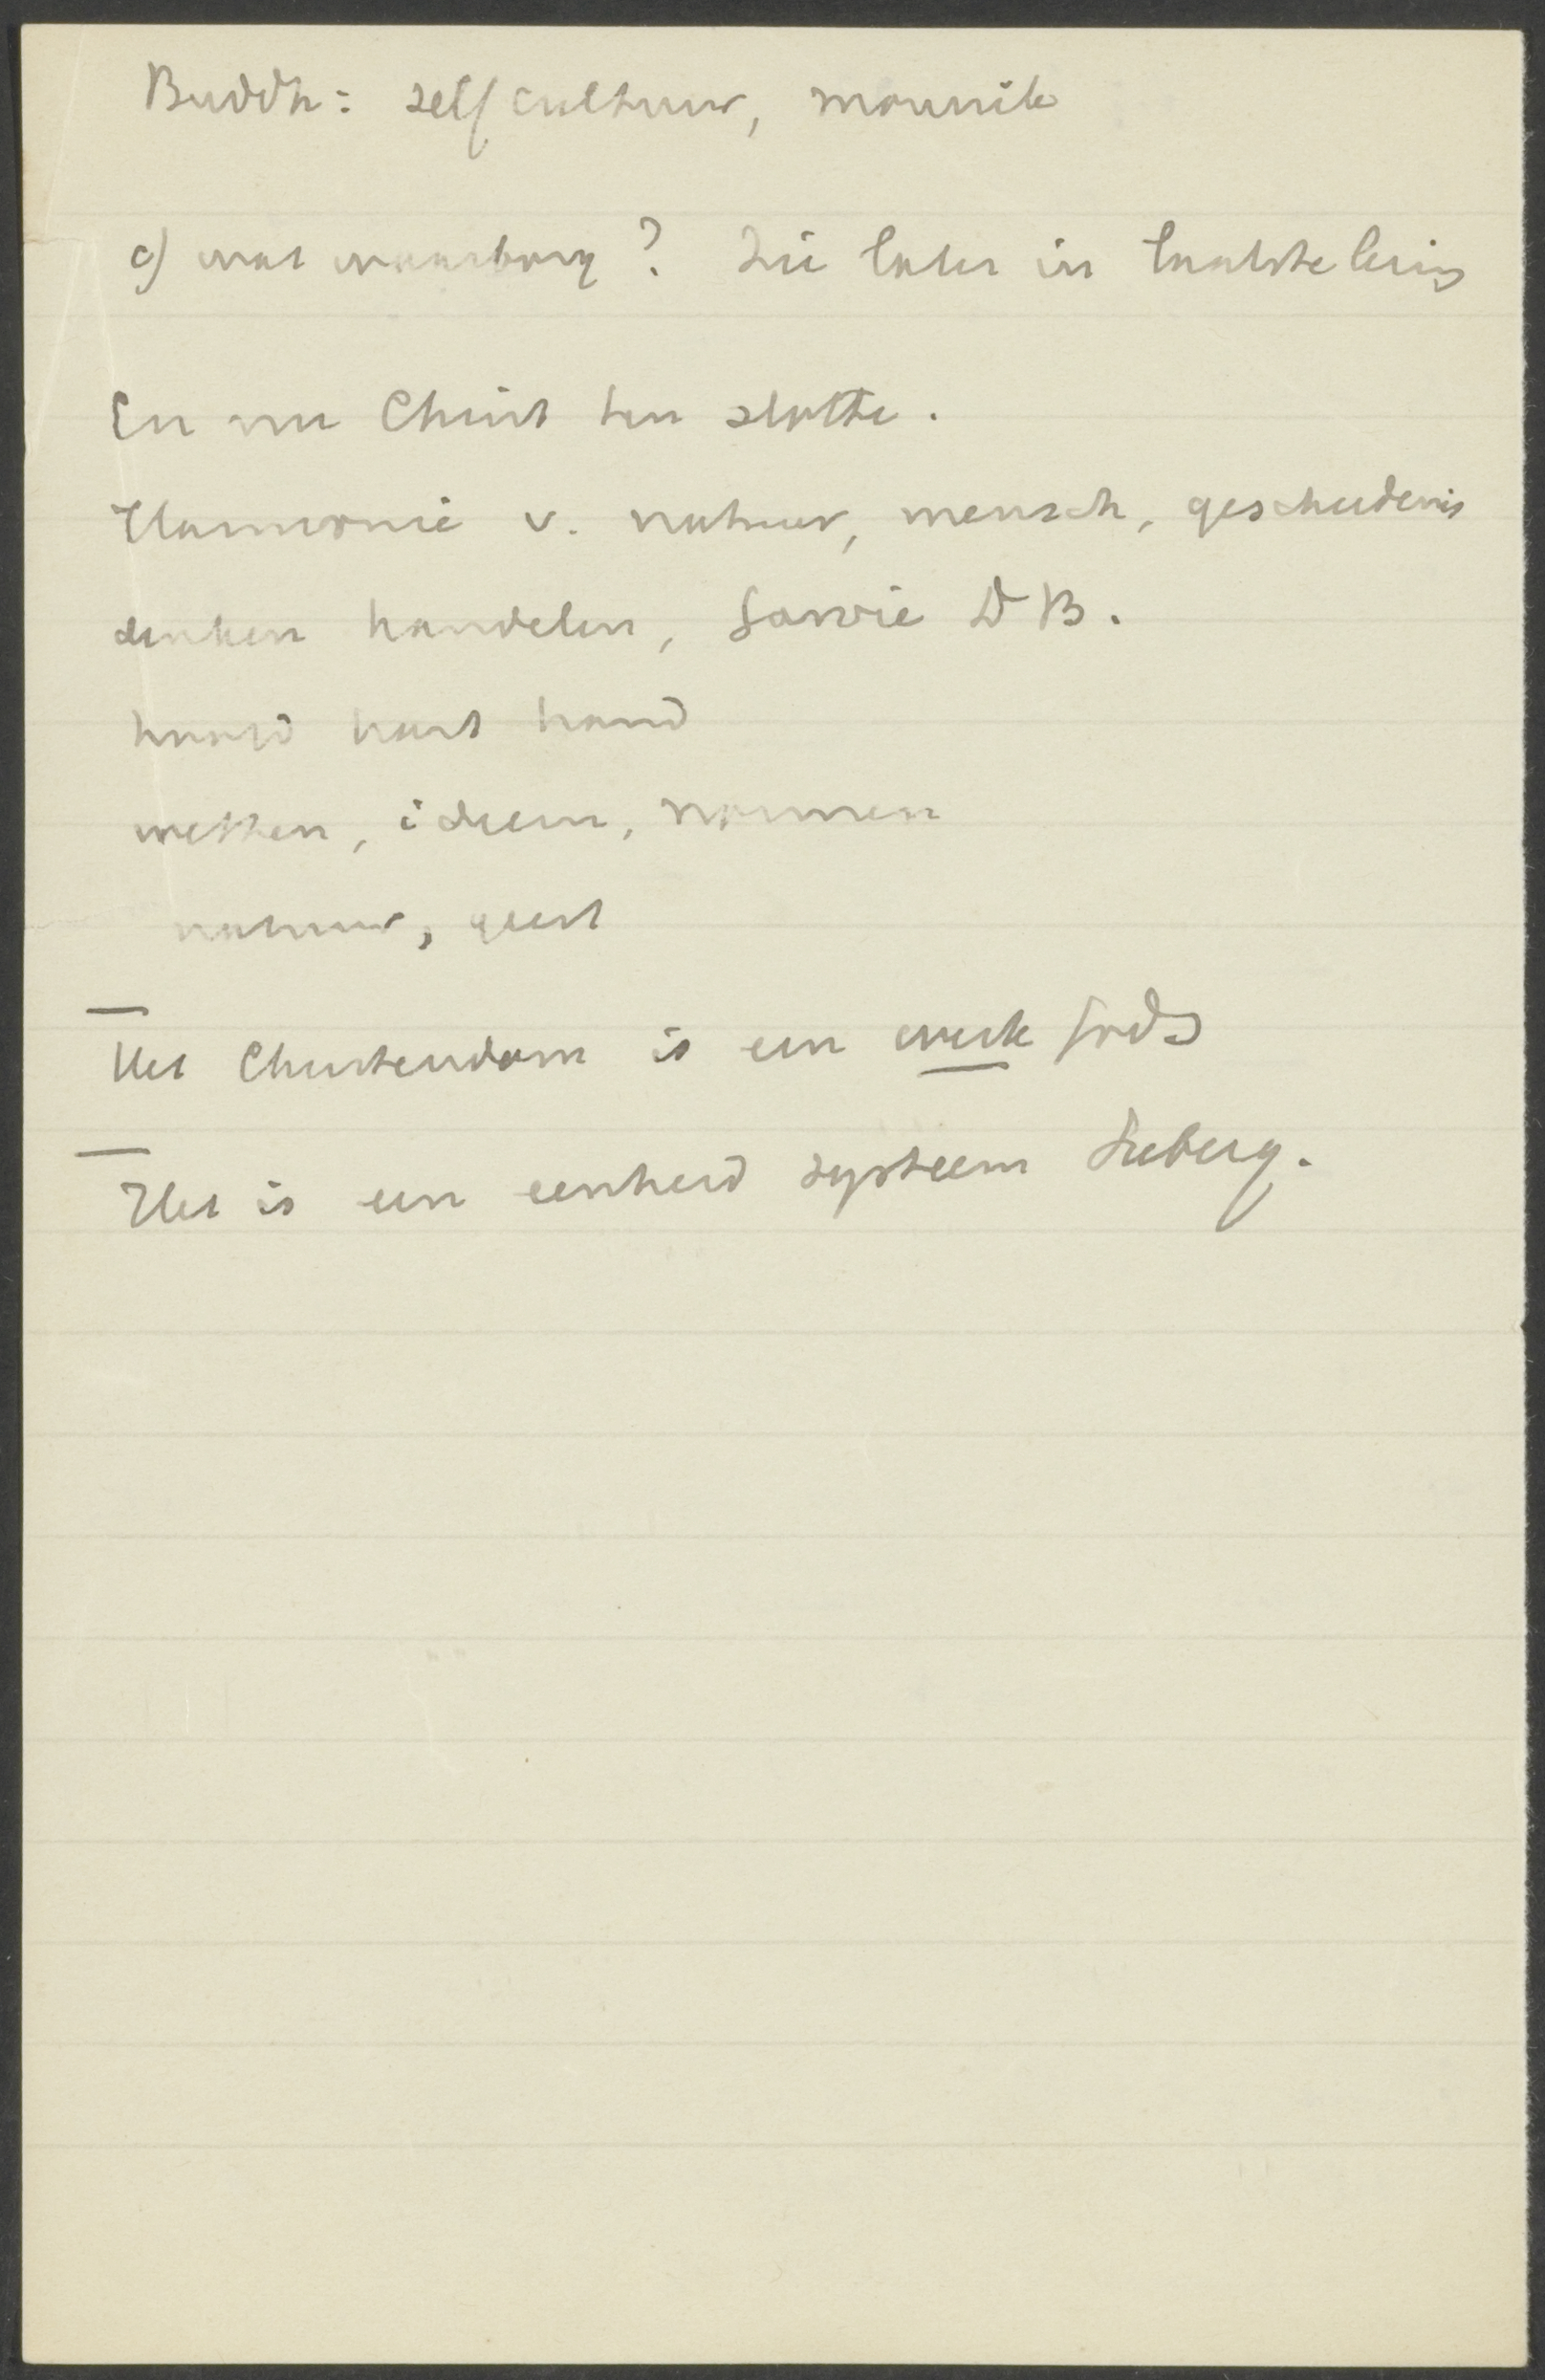 Buddh: selfcultuur, monnik
c) wat waarborg? Zie later in laatste lezing
En nu Christ ten slotte.
Harmonie v. natuur, mensch, geschiedenis
denken handelen, DB.
hoofd hart hand
wetten, ideeen, normen
natuur, geest
Het Christendom is een werk Gods
Het is een eenheid systeem Seeberg.